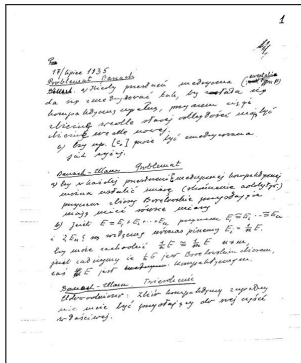 1
17 lipiec 1935
Problemat Banach
a) Kiedy przestrzeń metryczna (ewentualnie typu B)
da się zmetryzować tak, by stała się
kompaktyczną zupełną, przyczem ciągi
zbieżne wedle starej odległości mają być
zbieżne wedle nowej.
b) Czy np. [c₀] może być zmetryzowana
jak wyżej.
Banach-Ulam Problemat
a) Czy w każdej przestrzeni metrycznej kompaktycznej
można ustalić miarę (skończenie addytyw.)
przyczem zbiory Borelowskie przystające
mają mieć równe miary
b) Jeśli E = E₁ + E₂ + ... Eₙ przyczem E₁ ≅ E₂ ≅ ... ≅ Eₙ
czy może zachodzić
jest całym E jest Borelowskim zbiorem,
zaś E jest kompaktycznym.
Banach-Ulam. Twierdzenie
Udowodnione: Zbiór kompaktyczny zupełny
nie może być przystający do swej części
właściwej.